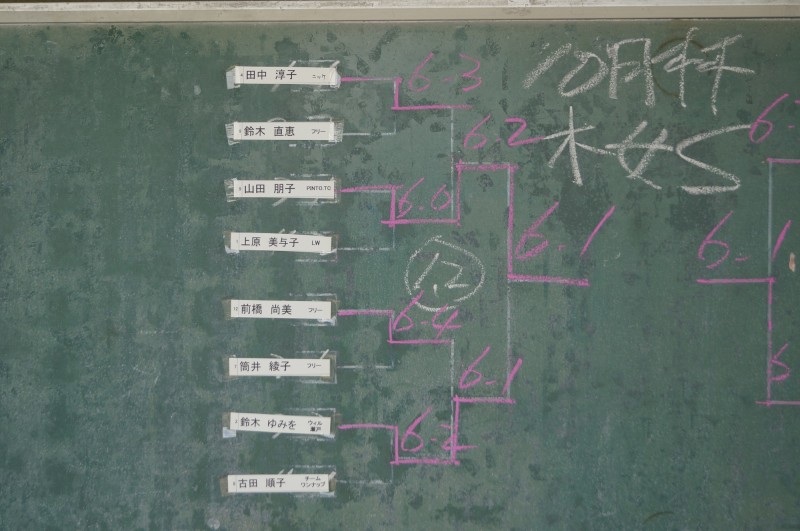 10月杯
木女S
田中 淳子 ニッケ
6-3
鈴木 直恵 フリー
6 2
山田 朋子 PINTO.TC
6-0
上原 美与子 LW
6-1
1,2
前橋 尚美 フリー
6-4
筒井 綾子 フリー
6-1
鈴木 ゆみを ウィル瀬戸
6-2
古田 順子 チームワンナップ
6-1